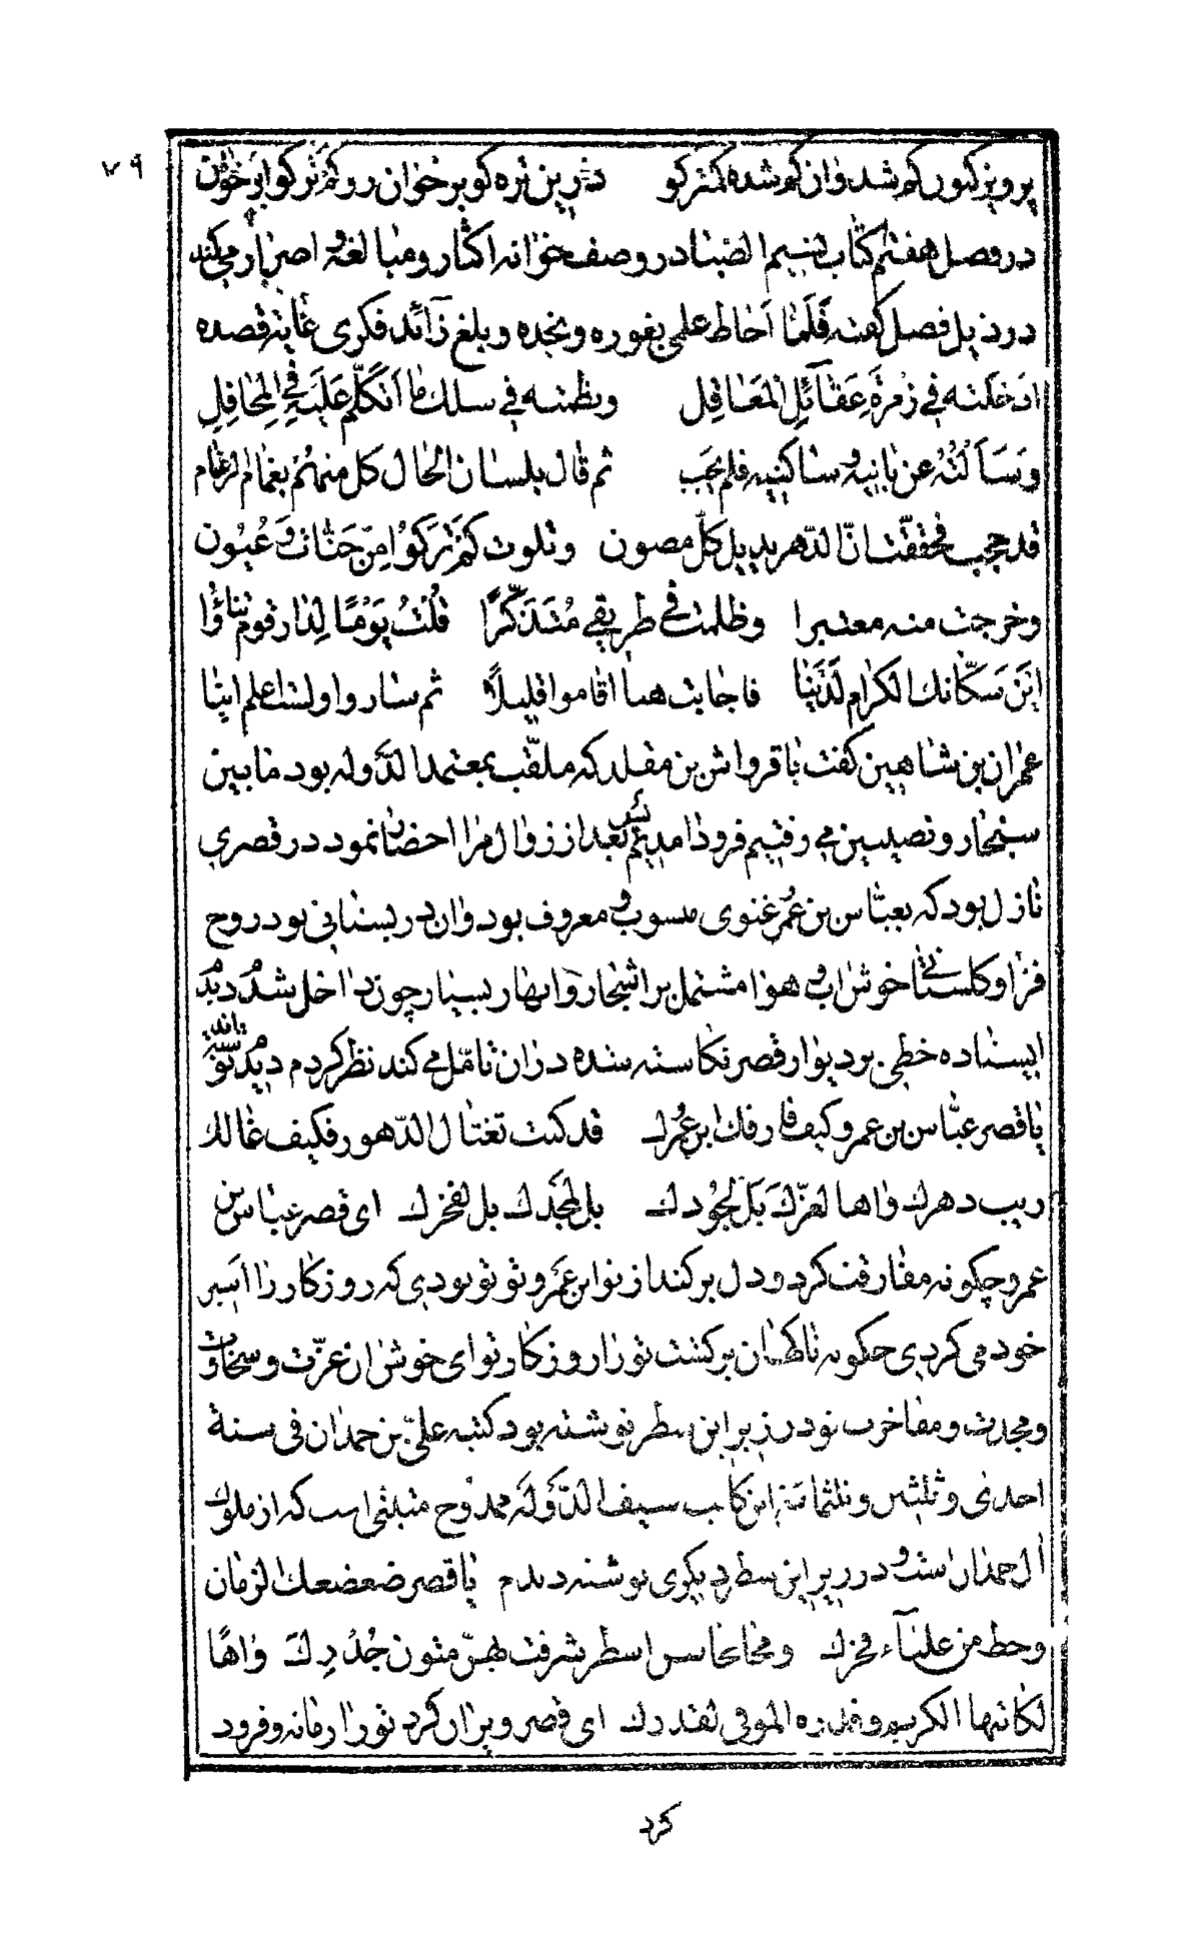 ۷۹
پرویز کنون کم شد وان کم شده کمتر کو زرین تره کو بر خوان رو کم ترکوا بر خوان
در فصل هفتم کتاب نسیم الصبا در وصف خوانه اکثار و مبالغه و اصرار میکند
در ذیل فصل گفته فَلَمّا اَحٰاط علمی بغوره و نجده و بلغ زآئد فکری غٰایة قصده
ادخلته فی زُمرَة عَقآئلِ المَعَاقِل ونظمته فی سلك ما اَتَكَلّمُ عَلَیهِ فی المَحافِلِ
وَسَاَلتُهُ عن بانیه و ساکنیه فلم یجب ثم قال بلسان الحال کل منهم بغمام الرغام
قد حجب فحققت انّ الدّهر یدیل کلّ مصون وتلوت کَم تَرَکوُا مِن جَنّات وَ عُیُون
وخرجت منه معتبرا وظلمت فی طریقی مُتَذَکّرًا قُلتُ یَومًا لِدٰار قوم تنٰاؤا
اَینَ سَکّانك الکرام لَدَینٰا فاجابت هنا اقاموا قلیلًا ثم ساروا ولست اعلم اینا
عمران بن شاهین گفت با قرواش بن مقلد که ملقّب بمعتمد الدّوله بود مابین
سنجار و نصیبین می رفتیم فرود امدیم پس بعد از زوال مرا احضار نمود در قصری
نازل بود که بعبّاس بن عمر غنوی منسوب و معروف بود وان در بستانی بود روح
فزا و گلستانی خوش اب و هوا مشتمل بر اشجار و انهار بسیار چون داخل شدم دیدم
ایستاده خطی بر دیوار قصر نگاشته شده دران تامّل می کند نظر کردم دیدم نوشته اند
یا قصر عبّاس بن عمر و کیف فارقك ابن عمرك قد کنت تغتال الدّهور فکیف غالك
ریب دهرك واها لعزّكَ بَل لجُودك بل لمجدك بل لفخرك ای قصر عبّاس بن
عمرو چگونه مفارقت کرد و دل بر کند از تو ابن عمرو تو تو بودی که روزکار را اسیر
خود می کردی چگونه ناگهان برکشت تورا روزکار تو ای خوش ان عزّت و سخاوت
و مجدت و مفاخرت تو در زیر این سطر نوشته بود کتبه علیّ بن حمدان فی سنة
احدی و ثلثین و ثلثمائة این کاتب سیف الدّوله ممدوح متنبّی است که از ملوك
ال حمدان است و در زیر این سطر دیگری نوشته دیدم یا قصر ضعضعك الزمان
وحط من علیآء فخرك ومحا محاسن اسطر شرفت بهنّ متون جُدُدِكَ واهًا
لکاتبها الکریم وقدره الموفی لقدرك ای قصر ویران کرد تورا زمانه و فرود
کرد